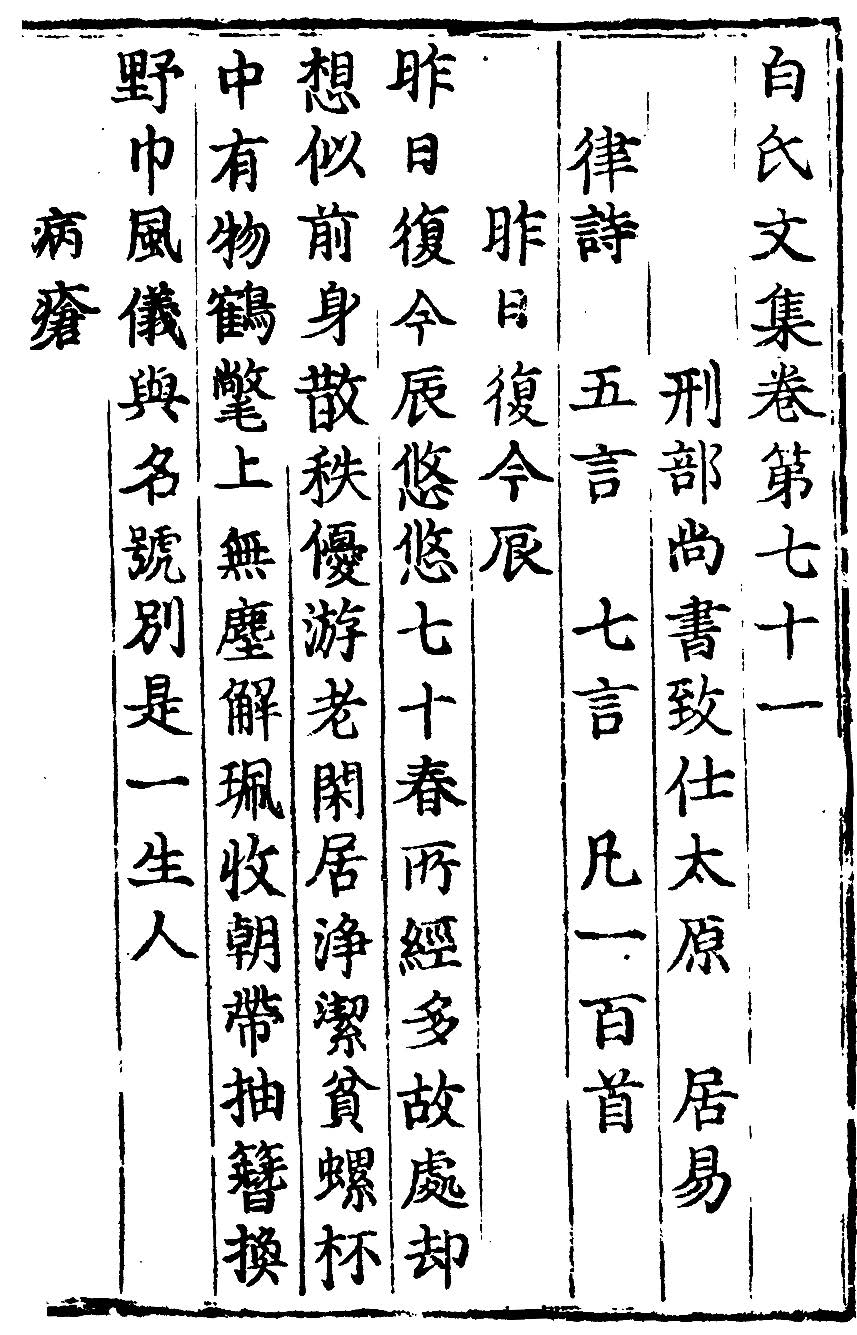 白氏文集卷第七十一
刑部尚書致仕太原 居易
律詩 五言 七言 凡一百首
昨日復今辰
昨日復今辰悠悠七十春所經多故處却
想似前身散秩優游老閑居淨潔貧螺杯
中有物鶴氅上無塵解珮收朝帶抽簪換
野巾風儀與名號別是一生人
病瘡